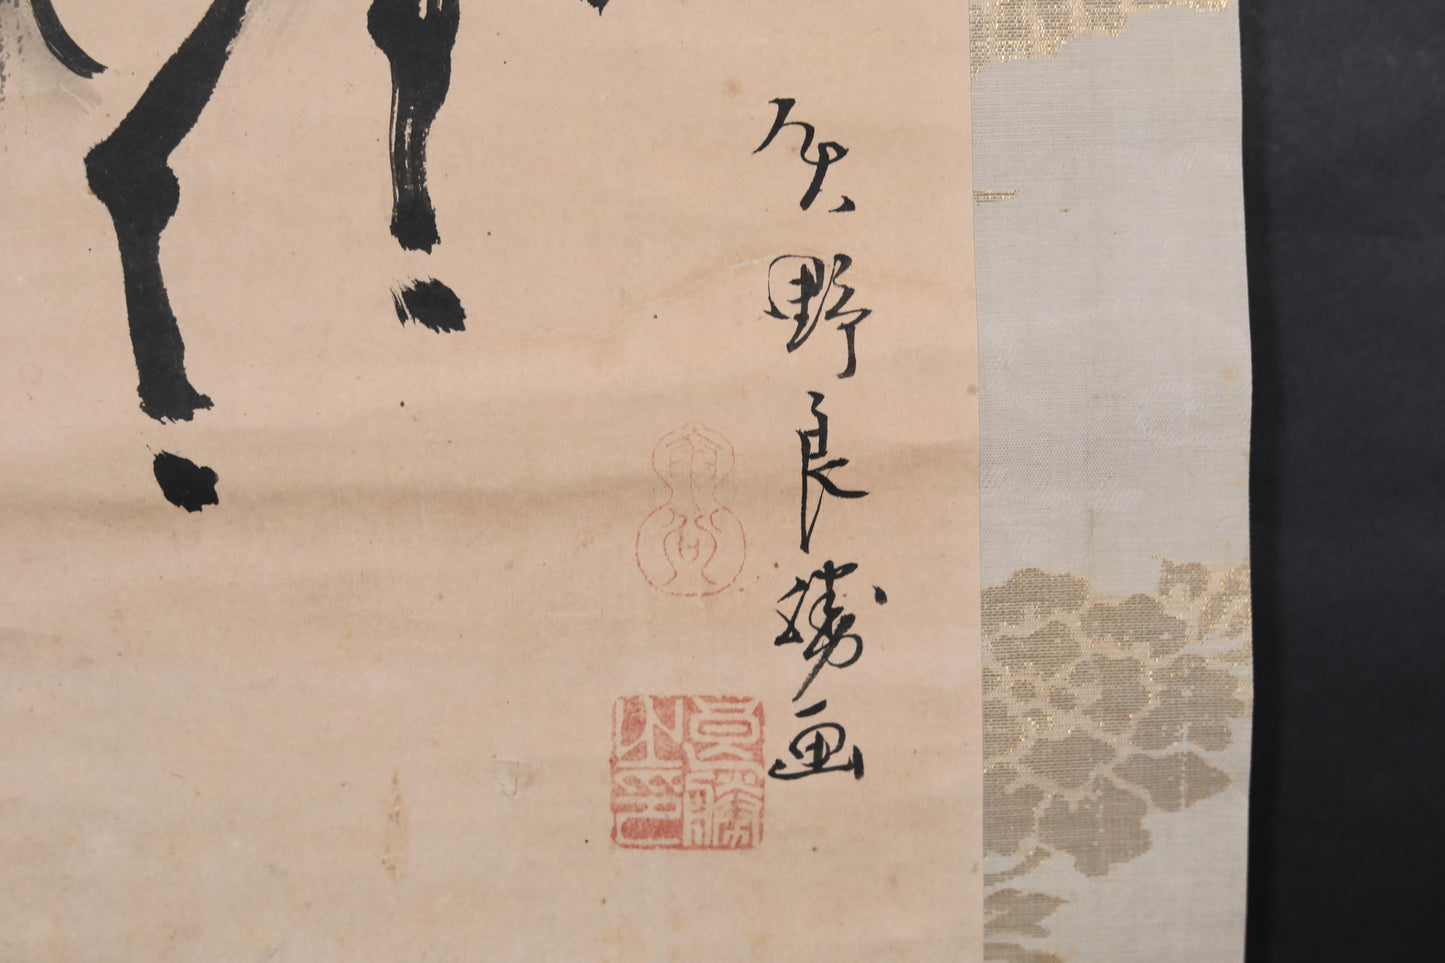 矢野良勝画
良勝之印